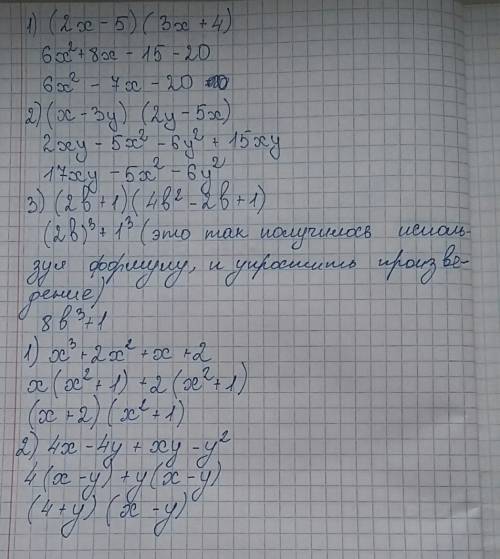 1) (2x - 5) (3x + 4)
6x² + 8x - 15 - 20
6x² - 7x - 20
2) (x - 3y) (2y - 5x)
2xy - 5x² - 6y² + 15xy
17xy - 5x² - 6y²
3) (2в + 1) (4в² - 2в + 1)
(2в)³ + 1³ (это так получилось исполь-
зуя формулу, и упростить произве-
дение)
8в³ + 1
1) x³ + 2x² + x + 2
x (x² + 1) + 2 (x² + 1)
(x + 2) (x² + 1)
2) 4x - 4y + xy - y²
4 (x - y) + y (x - y)
(4 + y) (x - y)